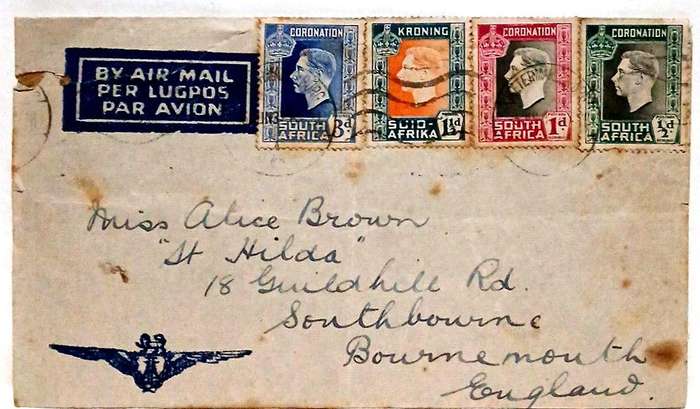 BY AIR MAIL
PER LUGPOS
PAR AVION
CORONATION
SOUTH AFRICA 3d
KRONING
SUID-AFRIKA 1½d
CORONATION
SOUTH AFRICA 1d
CORONATION
SOUTH AFRICA ½d
Miss Alice Brown
"St Hilda"
18 Guildhill Rd.
Southbourne
Bournemouth
England.